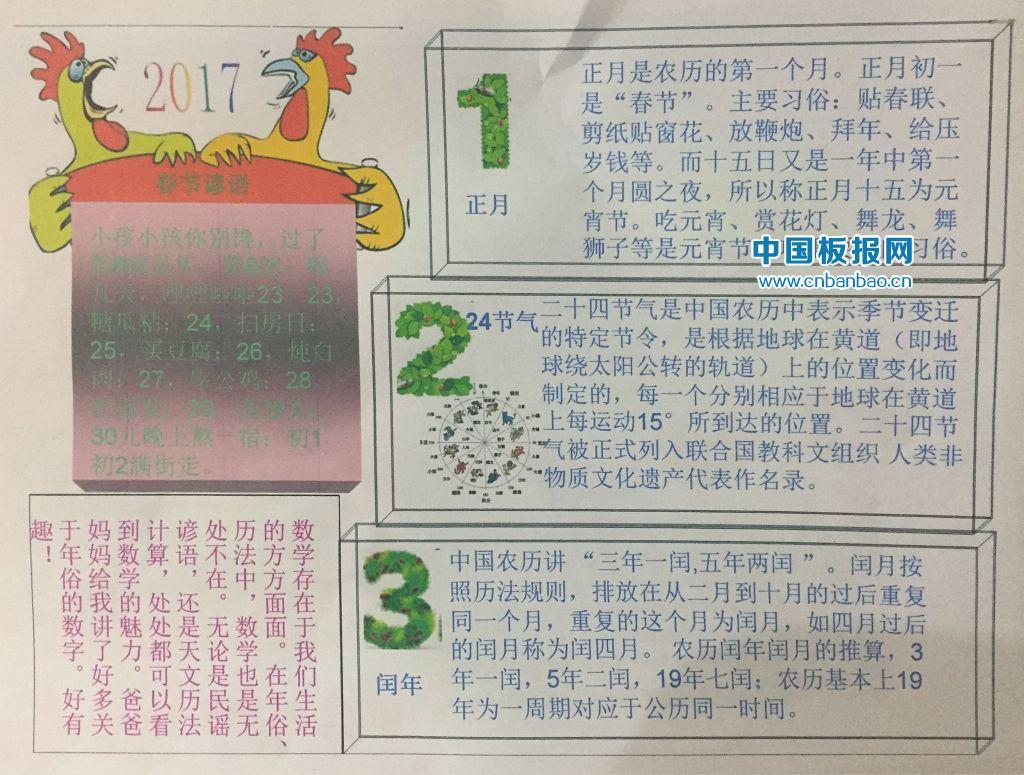 2017
春节谚语
小孩小孩你别馋，过了
几天，哩哩啦啦23。23，
糖瓜粘；24，扫房日；
25，买豆腐；26，炖白
肉；27，宰公鸡；28，
30儿晚上熬一宿；初1
初2满街走。
数学存在于我们生活
的方方面面。在年俗、
历法中，数学也是无
处不在。无论是民谣
谚语，还是天文历法
计算，处处都可以看
到数学的魅力。爸爸
妈妈给我讲了好多关
于年俗的数字。好有
趣！
1
正月
正月是农历的第一个月。正月初一
是“春节”。主要习俗：贴春联、
剪纸贴窗花、放鞭炮、拜年、给压
岁钱等。而十五日又是一年中第一
个月圆之夜，所以称正月十五为元
宵节。吃元宵、赏花灯、舞龙、舞
狮子等是元宵节 习俗。
中国板报网
www.cnbanbao.cn
2
24节气
二十四节气是中国农历中表示季节变迁
的特定节令，是根据地球在黄道（即地
球绕太阳公转的轨道）上的位置变化而
制定的，每一个分别相应于地球在黄道
上每运动15°所到达的位置。二十四节
气被正式列入联合国教科文组织 人类非
物质文化遗产代表作名录。
3
闰年
中国农历讲 “三年一闰,五年两闰 ”。闰月按
照历法规则，排放在从二月到十月的过后重复
同一个月，重复的这个月为闰月，如四月过后
的闰月称为闰四月。 农历闰年闰月的推算，3
年一闰，5年二闰，19年七闰；农历基本上19
年为一周期对应于公历同一时间。